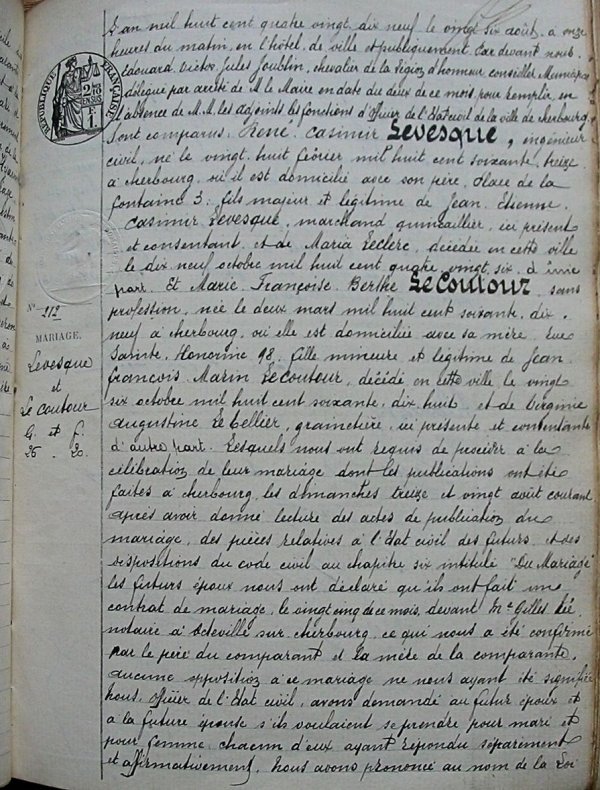 L'an mil huit cent quatre vingt dix neuf le vingt six août, à onze
heures du matin, en l'hôtel de ville et publiquement. Par devant nous
Edouard Victor Jules Joublin, chevalier de la légion d'honneur conseiller Municipal
délégué par arrêté de M. le Maire en date du deux de ce mois, pour remplir, en
l'absence de M.M. les adjoints les fonctions d'Officier de l'Etat civil de la ville de cherbourg,
Sont comparus. René. Casimir Levesque, ingénieur
civil, né le vingt. huit février mil huit cent soixante. treize
à cherbourg, où il est domicilié avec son père, Place de la
fontaine 3. fils majeur et légitime de Jean. Etienne.
Casimir Levesque, marchand quincaillier, ici présent
et consentant et de Maria Leclerc, décédée en cette ville
le dix neuf octobre mil huit cent quatre vingt. six, d'une
part. Et Marie. Françoise. Berthe Le Coutour, sans
profession, née le deux mars mil huit cent soixante. dix.
neuf à cherbourg, où elle est domiciliée avec sa mère, Rue
Sainte. Honorine 98. fille mineure et légitime de Jean
François. Marin Le Coutour, décédé en cette ville le vingt
six octobre mil huit cent soixante. dix huit et de Virginie
Augustine Le Tellier, grainetière, ici présente et consentante
d'autre part. Lesquels nous ont requis de procéder à la
célébration de leur mariage dont les publications ont été
faites à cherbourg, les dimanches treize et vingt août courant
après avoir donné lecture des actes de publication du
mariage, des pièces relatives à l'Etat civil des futurs et des
dispositions du code civil au chapitre six intitulé "Du Mariage"
les futurs époux nous ont déclaré qu'ils ont fait un
contrat de mariage, le vingt cinq de ce mois, devant Me Gillet
notaire à Octeville sur cherbourg, ce qui nous a été confirmé
par le père du comparant et la mère de la comparante.
aucune opposition à ce mariage ne nous ayant été signifiée
nous, Officier de l'Etat civil, avons demandé au futur époux et
à la future épouse s'ils voulaient se prendre pour mari et
pour femme, chacun d'eux ayant répondu séparément
et affirmativement, Nous avons prononcé au nom de la Loi
RÉPUBLIQUE FRANÇAISE
N° 212
MARIAGE.
Levesque
et
Le Coutour
G. et f.
26. 20.